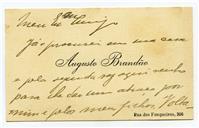 Meu
Já procurei em sua casa
Augusto Brandão
e pela segunda vez aqui venho
para lhe dar um abraço por
mim e pelos meus filhos. Volta
Rua dos Fanqueiros, 306